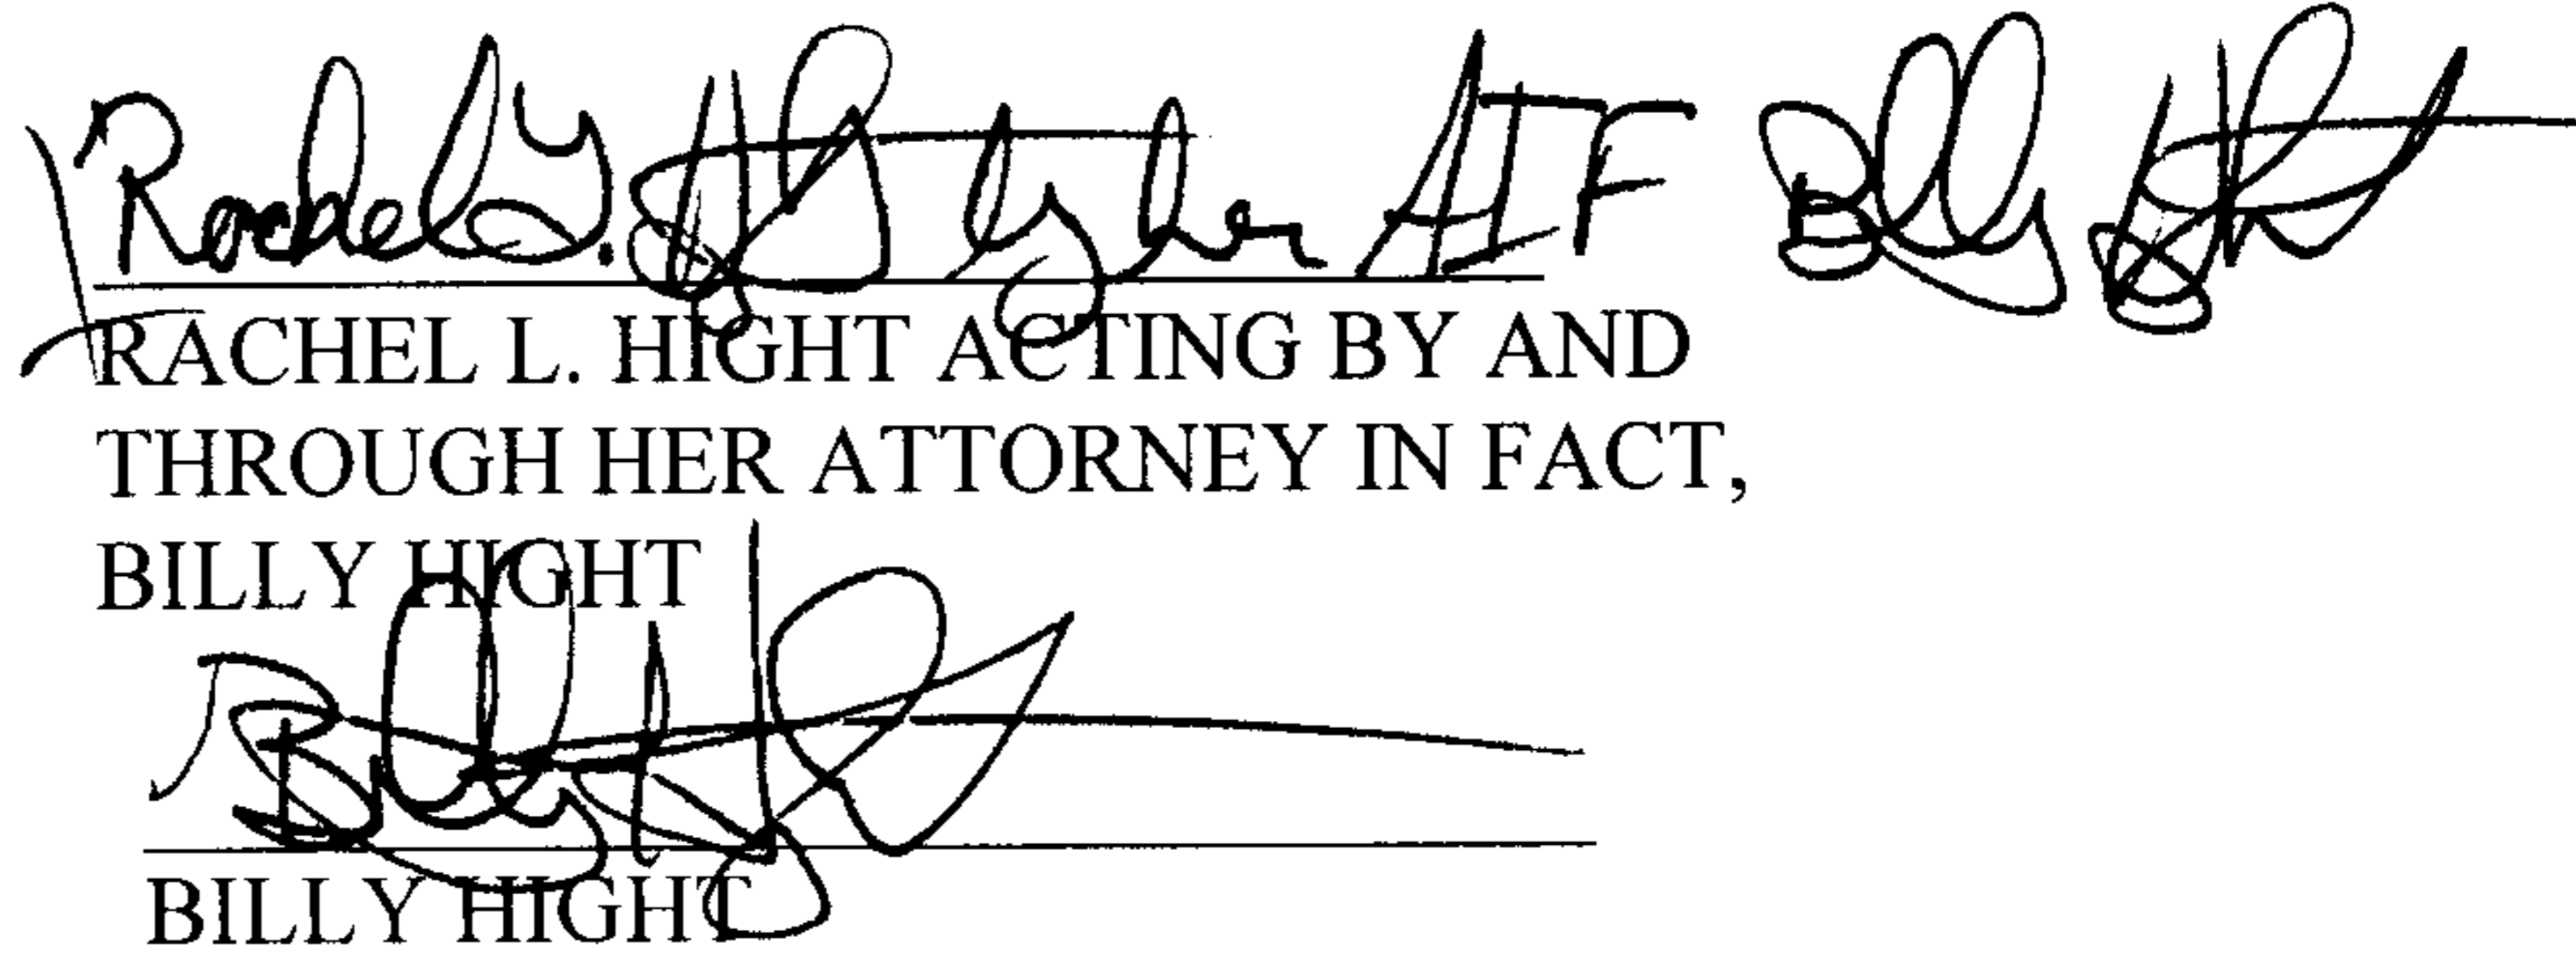 Rachel L. Hight by her AIF Billy Hight
RACHEL L. HIGHT ACTING BY AND
THROUGH HER ATTORNEY IN FACT,
BILLY HIGHT
Billy Hight
BILLY HIGHT